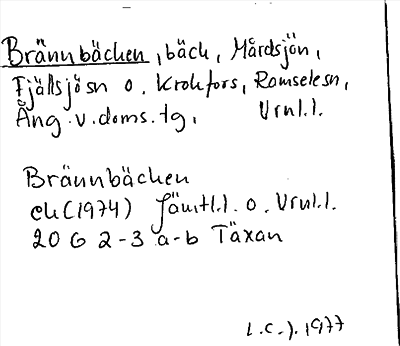 Brännbäcken, bäck, Mårdsjön,
Fjällsjösn o. Krokfors, Ramselesn,
Ång. v. doms. tg, Vrnl.l.
Brännbäcken
ek (1974) Jämtl.l. o. Vrnl.l.
20 G 2-3 a-b Täxan
L.C.J. 1977